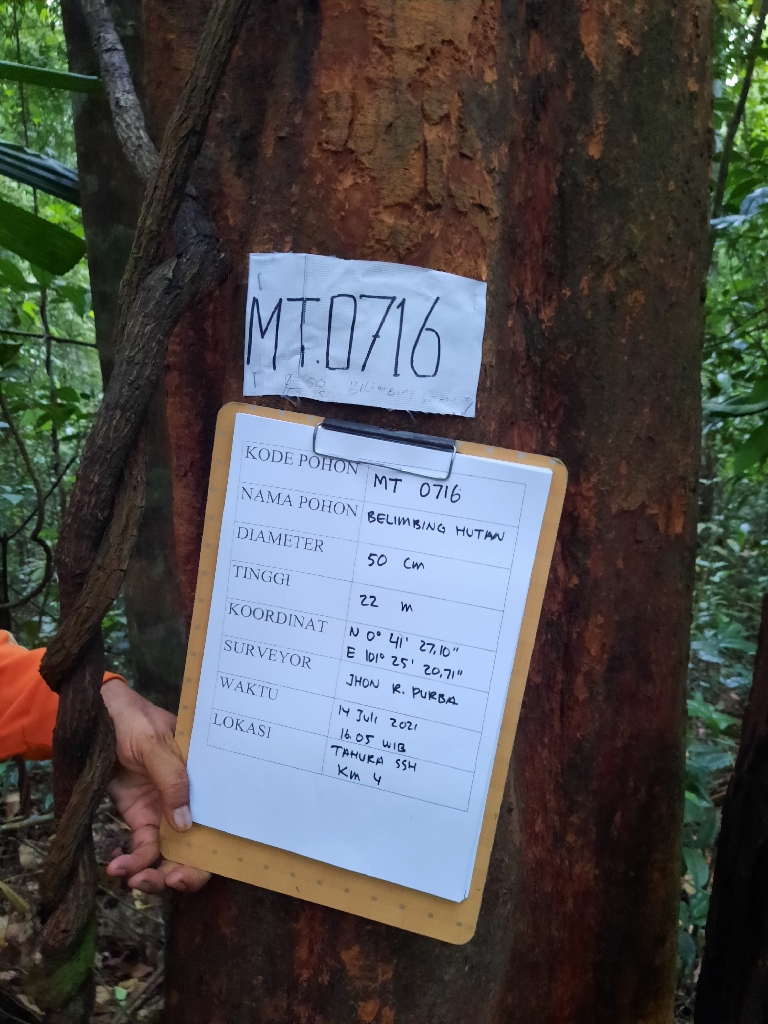 MT.0716
KODE POHON MT 0716
NAMA POHON BELIMBING HUTAN
DIAMETER 50 cm
TINGGI 22 m
KOORDINAT N 0° 41' 27,10"
E 101° 25' 20,71"
SURVEYOR JHON R. PURBA
WAKTU 14 JULI 2021
16.05 WIB
LOKASI TAHURA SSH
KM 4